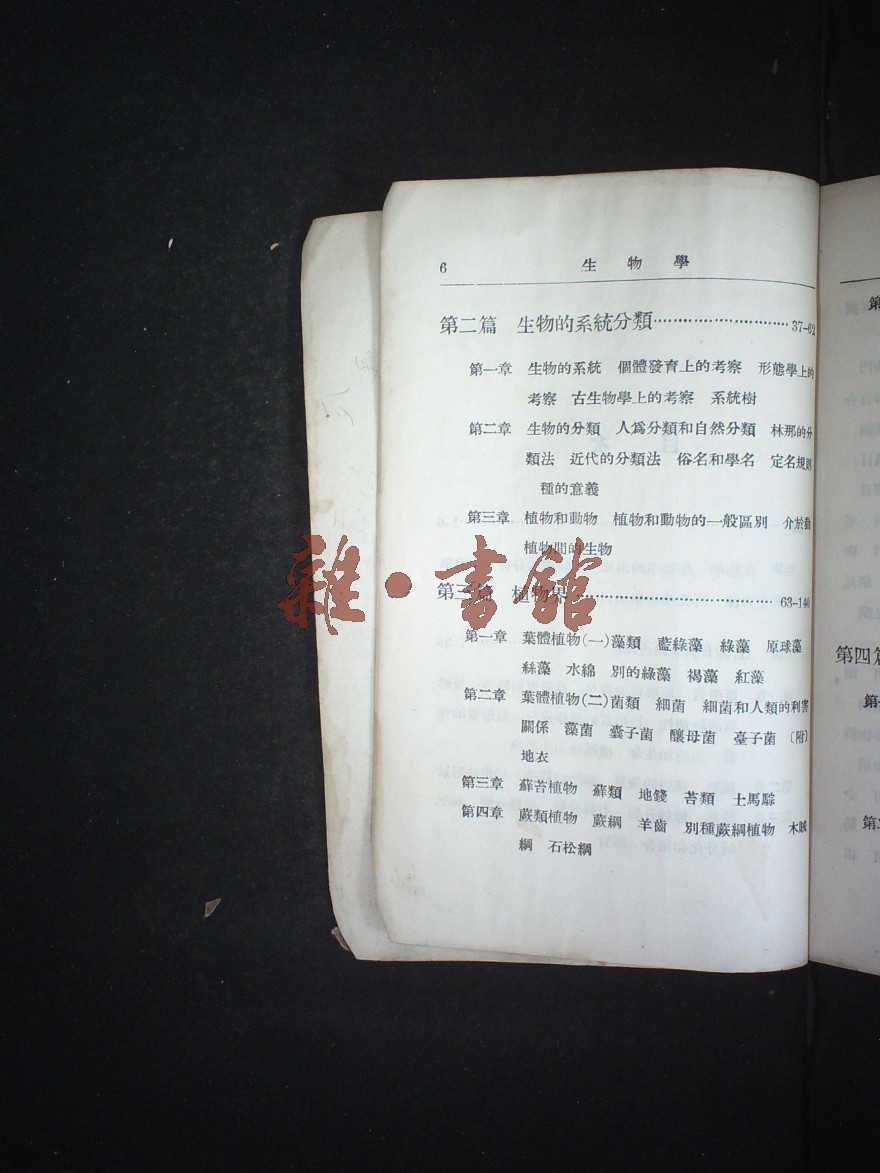 6 生物學
第二篇 生物的系統分類……………………37-62
第一章 生物的系統 個體發育上的考察 形態學上的
考察 古生物學上的考察 系統樹
第二章 生物的分類 人爲分類和自然分類 林那的分
類法 近代的分類法 俗名和學名 定名規則
種的意義
第三章 植物和動物 植物和動物的一般區別 介於動
植物間的生物
雜·書館
第三篇 植物界……………………………63-140
第一章 葉體植物(一)藻類 藍綠藻 綠藻 原球藻
絲藻 水綿 別的綠藻 褐藻 紅藻
第二章 葉體植物(二)菌類 細菌 細菌和人類的利害
關係 藻菌 囊子菌 釀母菌 臺子菌〔附〕
地衣
第三章 蘚苔植物 蘚類 地錢 苔類 土馬騌
第四章 蕨類植物 蕨綱 羊齒 別種蕨綱植物 木賊
綱 石松綱
第四篇